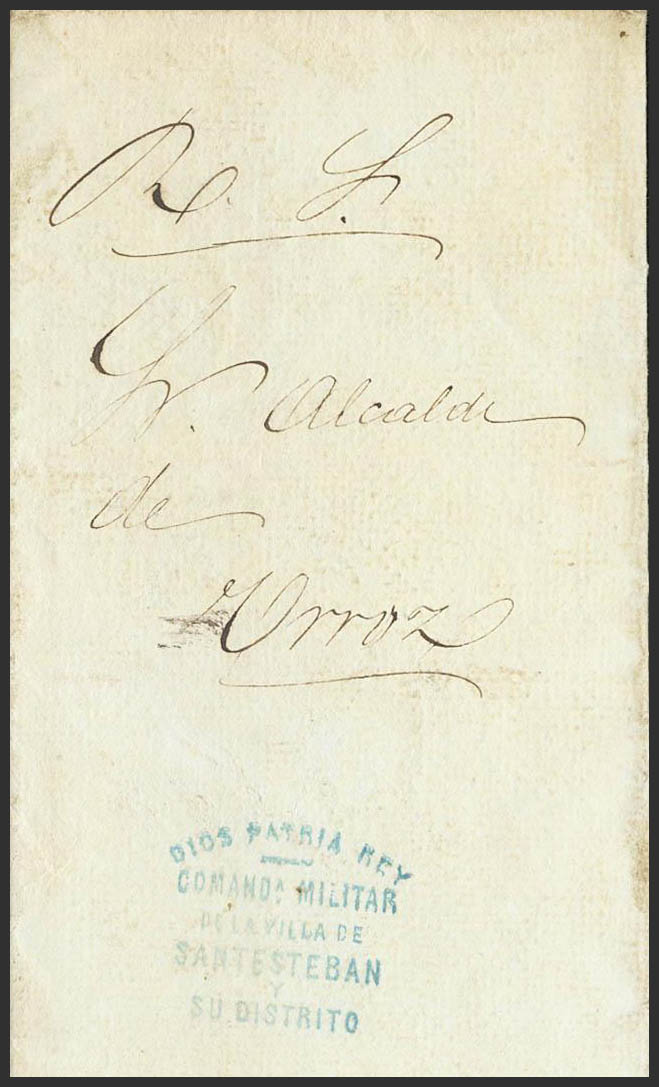 R. S.
Sr. Alcalde
de
Urroz
DIOS PATRIA REY
COMANDª MILITAR
DE LA VILLA DE
SANTESTEBAN
Y
SU DISTRITO